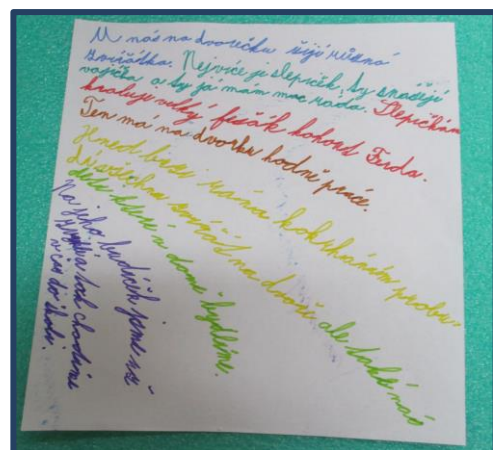 U nás na dvorečku žijí různá
zvířátka. Nejvíc je slepiček, ty snášejí
vajíčka a ty já mám moc ráda. Slepičkám
kraluje velký fešák kohout Ferda.
Ten má na dvorku hodně práce.
Hned brzy zrána kokrháním probu-
dí všechna zvířata na dvoře ale také nás
děti které v domě bydlíme.
Na jeho budíček jsme si
zvykli a tak chodíme
včas do školy.